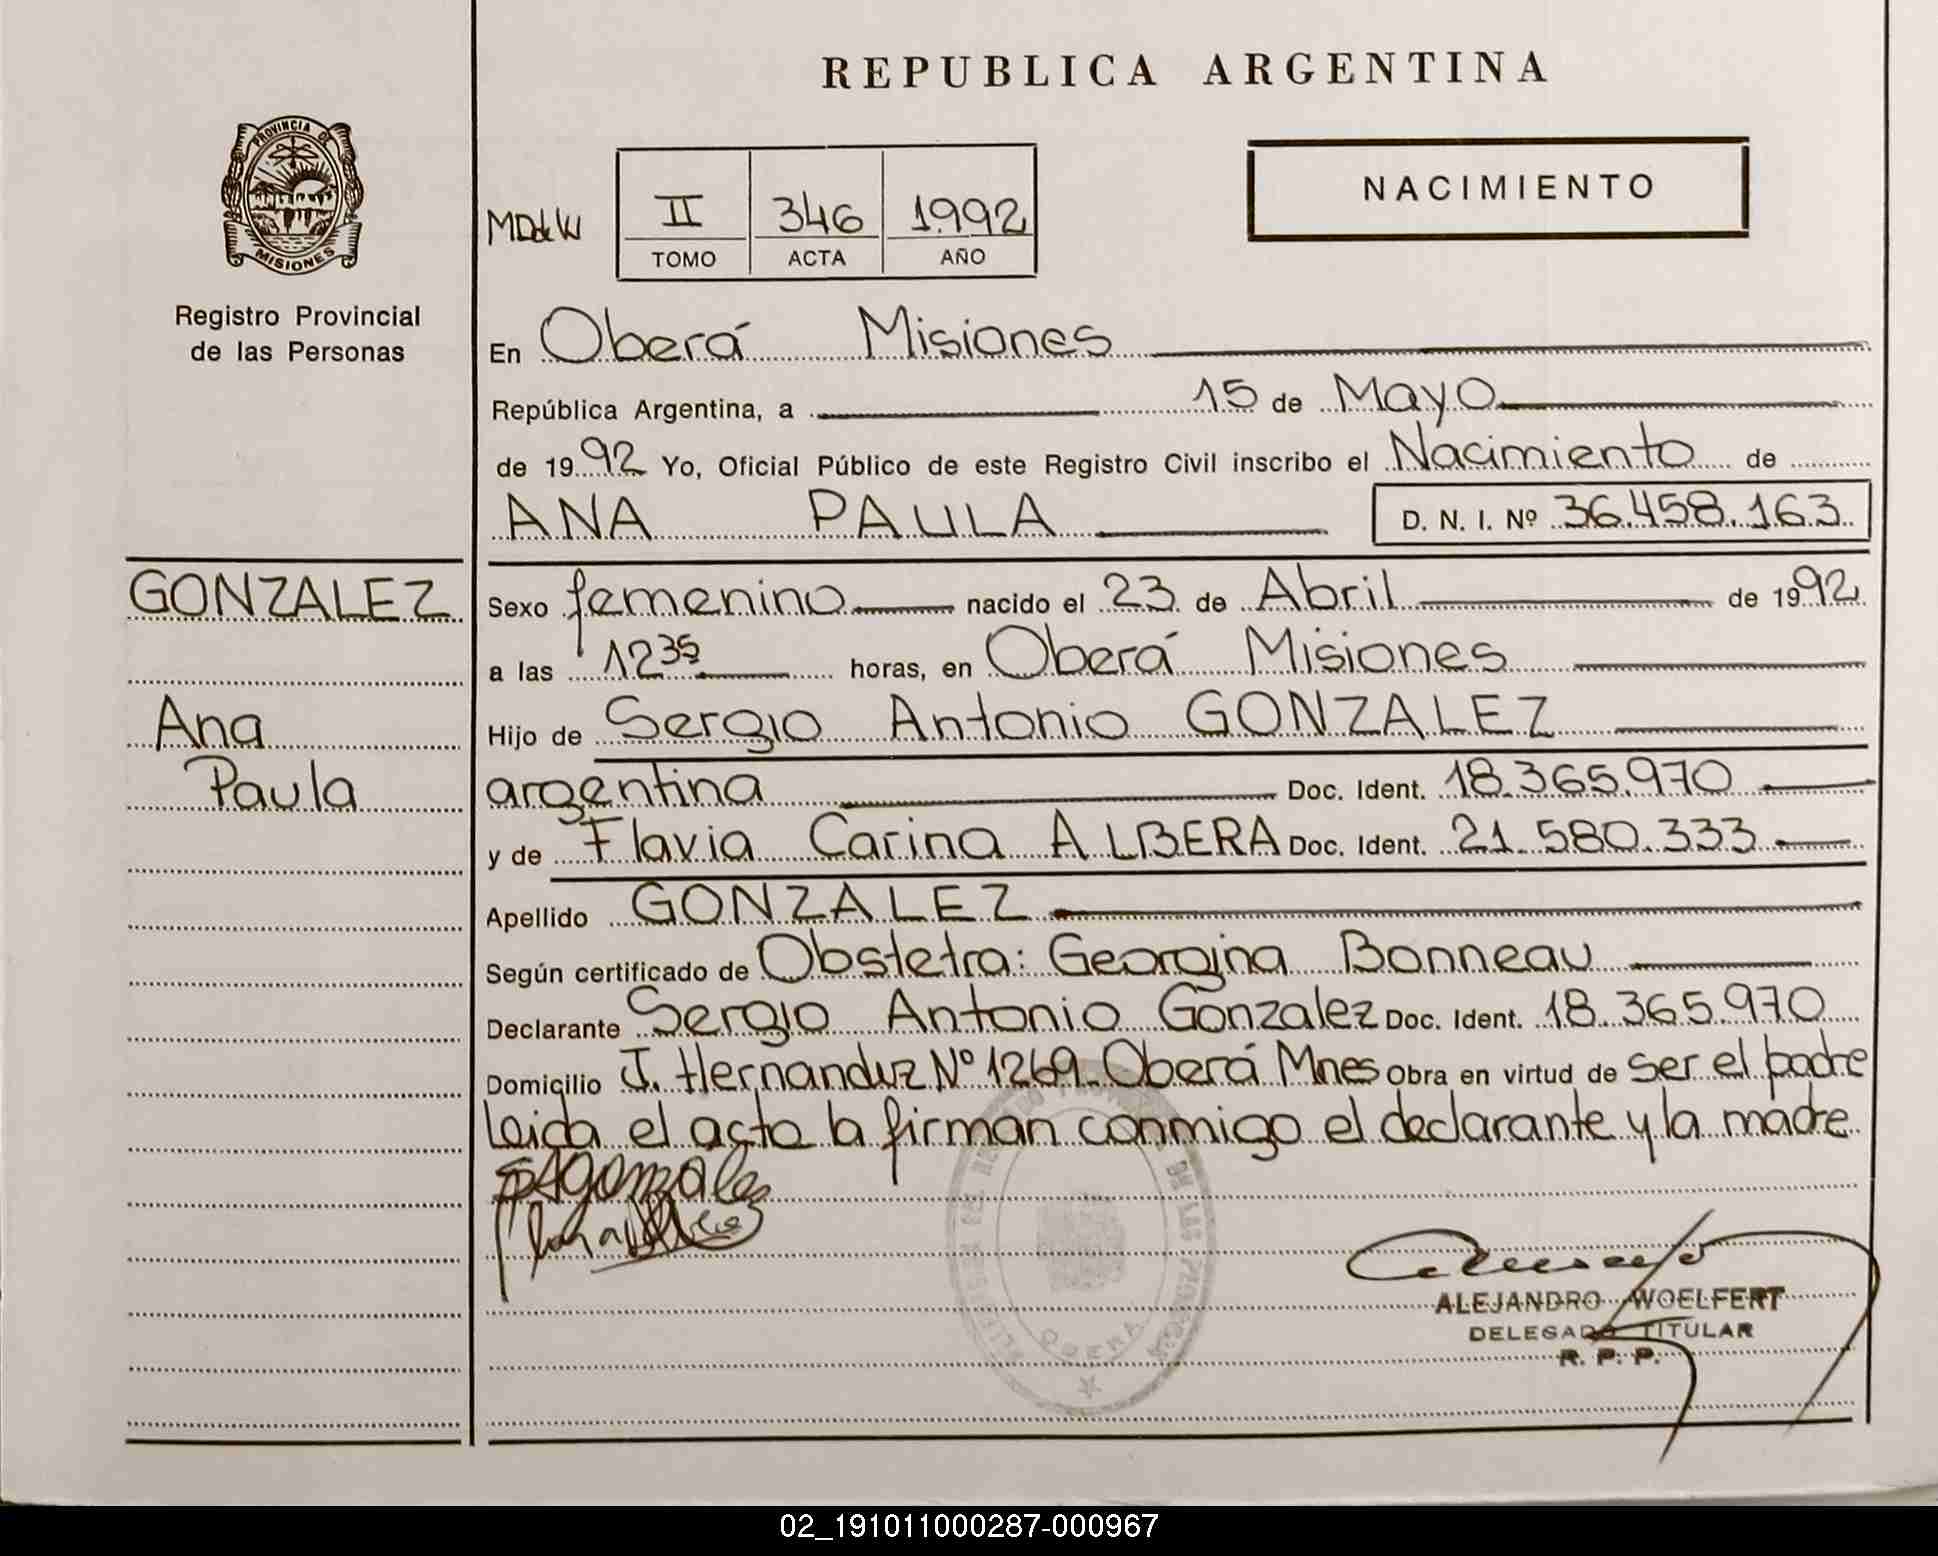 REPUBLICA ARGENTINA
PROVINCIA DE
MISIONES
Registro Provincial
de las Personas
II 346 1992
TOMO ACTA AÑO
NACIMIENTO
En Oberá Misiones
República Argentina, a 15 de Mayo
de 1992 Yo, Oficial Público de este Registro Civil inscribo el Nacimiento de
ANA PAULA D. N. I. Nº 36.458.163
GONZALEZ
Ana
Paula
Sexo femenino nacido el 23 de Abril de 1992
a las 12 35 horas, en Oberá Misiones
Hijo de Sergio Antonio GONZALEZ
argentina Doc. Ident. 18.365.970
y de Flavia Carina ALBERA Doc. Ident. 21.580.333
Apellido GONZALEZ
Según certificado de Obstetra: Georgina Bonneau
Declarante Sergio Antonio Gonzalez Doc. Ident. 18.365.970
Domicilio J. Hernandez Nº 1269 Oberá Mnes Obra en virtud de ser el padre
leida el acta la firman conmigo el declarante y la madre
OBERA
ALEJANDRO WOELFERT
DELEGADO TITULAR
R. P. P.
02_191011000287-000967